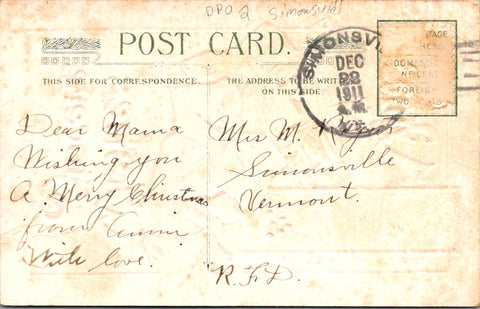 DPO 2 Simonsvill
POST CARD.
THIS SIDE FOR CORRESPONDENCE.
THE ADDRESS TO BE WRIT
ON THIS SIDE.
SIMONSVI
DEC
28
1911
A.M.
VT.
STAGE
HERE
DOMESTIC
NE CENT
FOREIGN
TWO
Dear Mama
Wishing you
A Merry Christmas
from
With love.
Mrs M.
Simonsville
Vermont.
R.F.D.